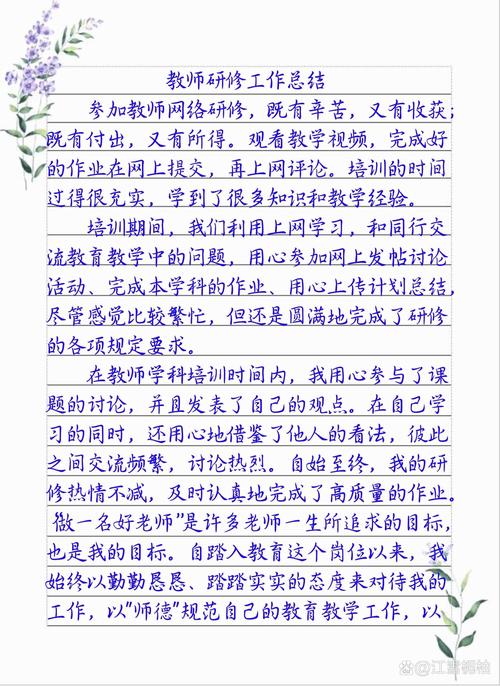 教师研修工作总结
参加教师网络研修，既有辛苦，又有收获；
既有付出，又有所得。观看教学视频，完成好
的作业在网上提交，再上网评论。培训的时间
过得很充实，学到了很多知识和教学经验。
培训期间，我们利用上网学习，和同行交
流教育教学中的问题，用心参加网上发帖讨论
活动、完成本学科的作业、用心上传计划总结，
尽管感觉比较繁忙，但还是圆满地完成了研修
的各项规定要求。
在教师学科培训时间内，我用心参与了课
题的讨论，并且发表了自己的观点。在自己学
习的同时，还用心地借鉴了他人的看法，彼此
之间交流频繁，讨论热烈。自始至终，我的研
修热情不减，及时认真地完成了高质量的作业。
“做一名好老师”是许多老师一生所追求的目标，
也是我的目标。自踏入教育这个岗位以来，我
始终以勤勤恳恳、踏踏实实的态度来对待我的
工作，以“师德”规范自己的教育教学工作，以